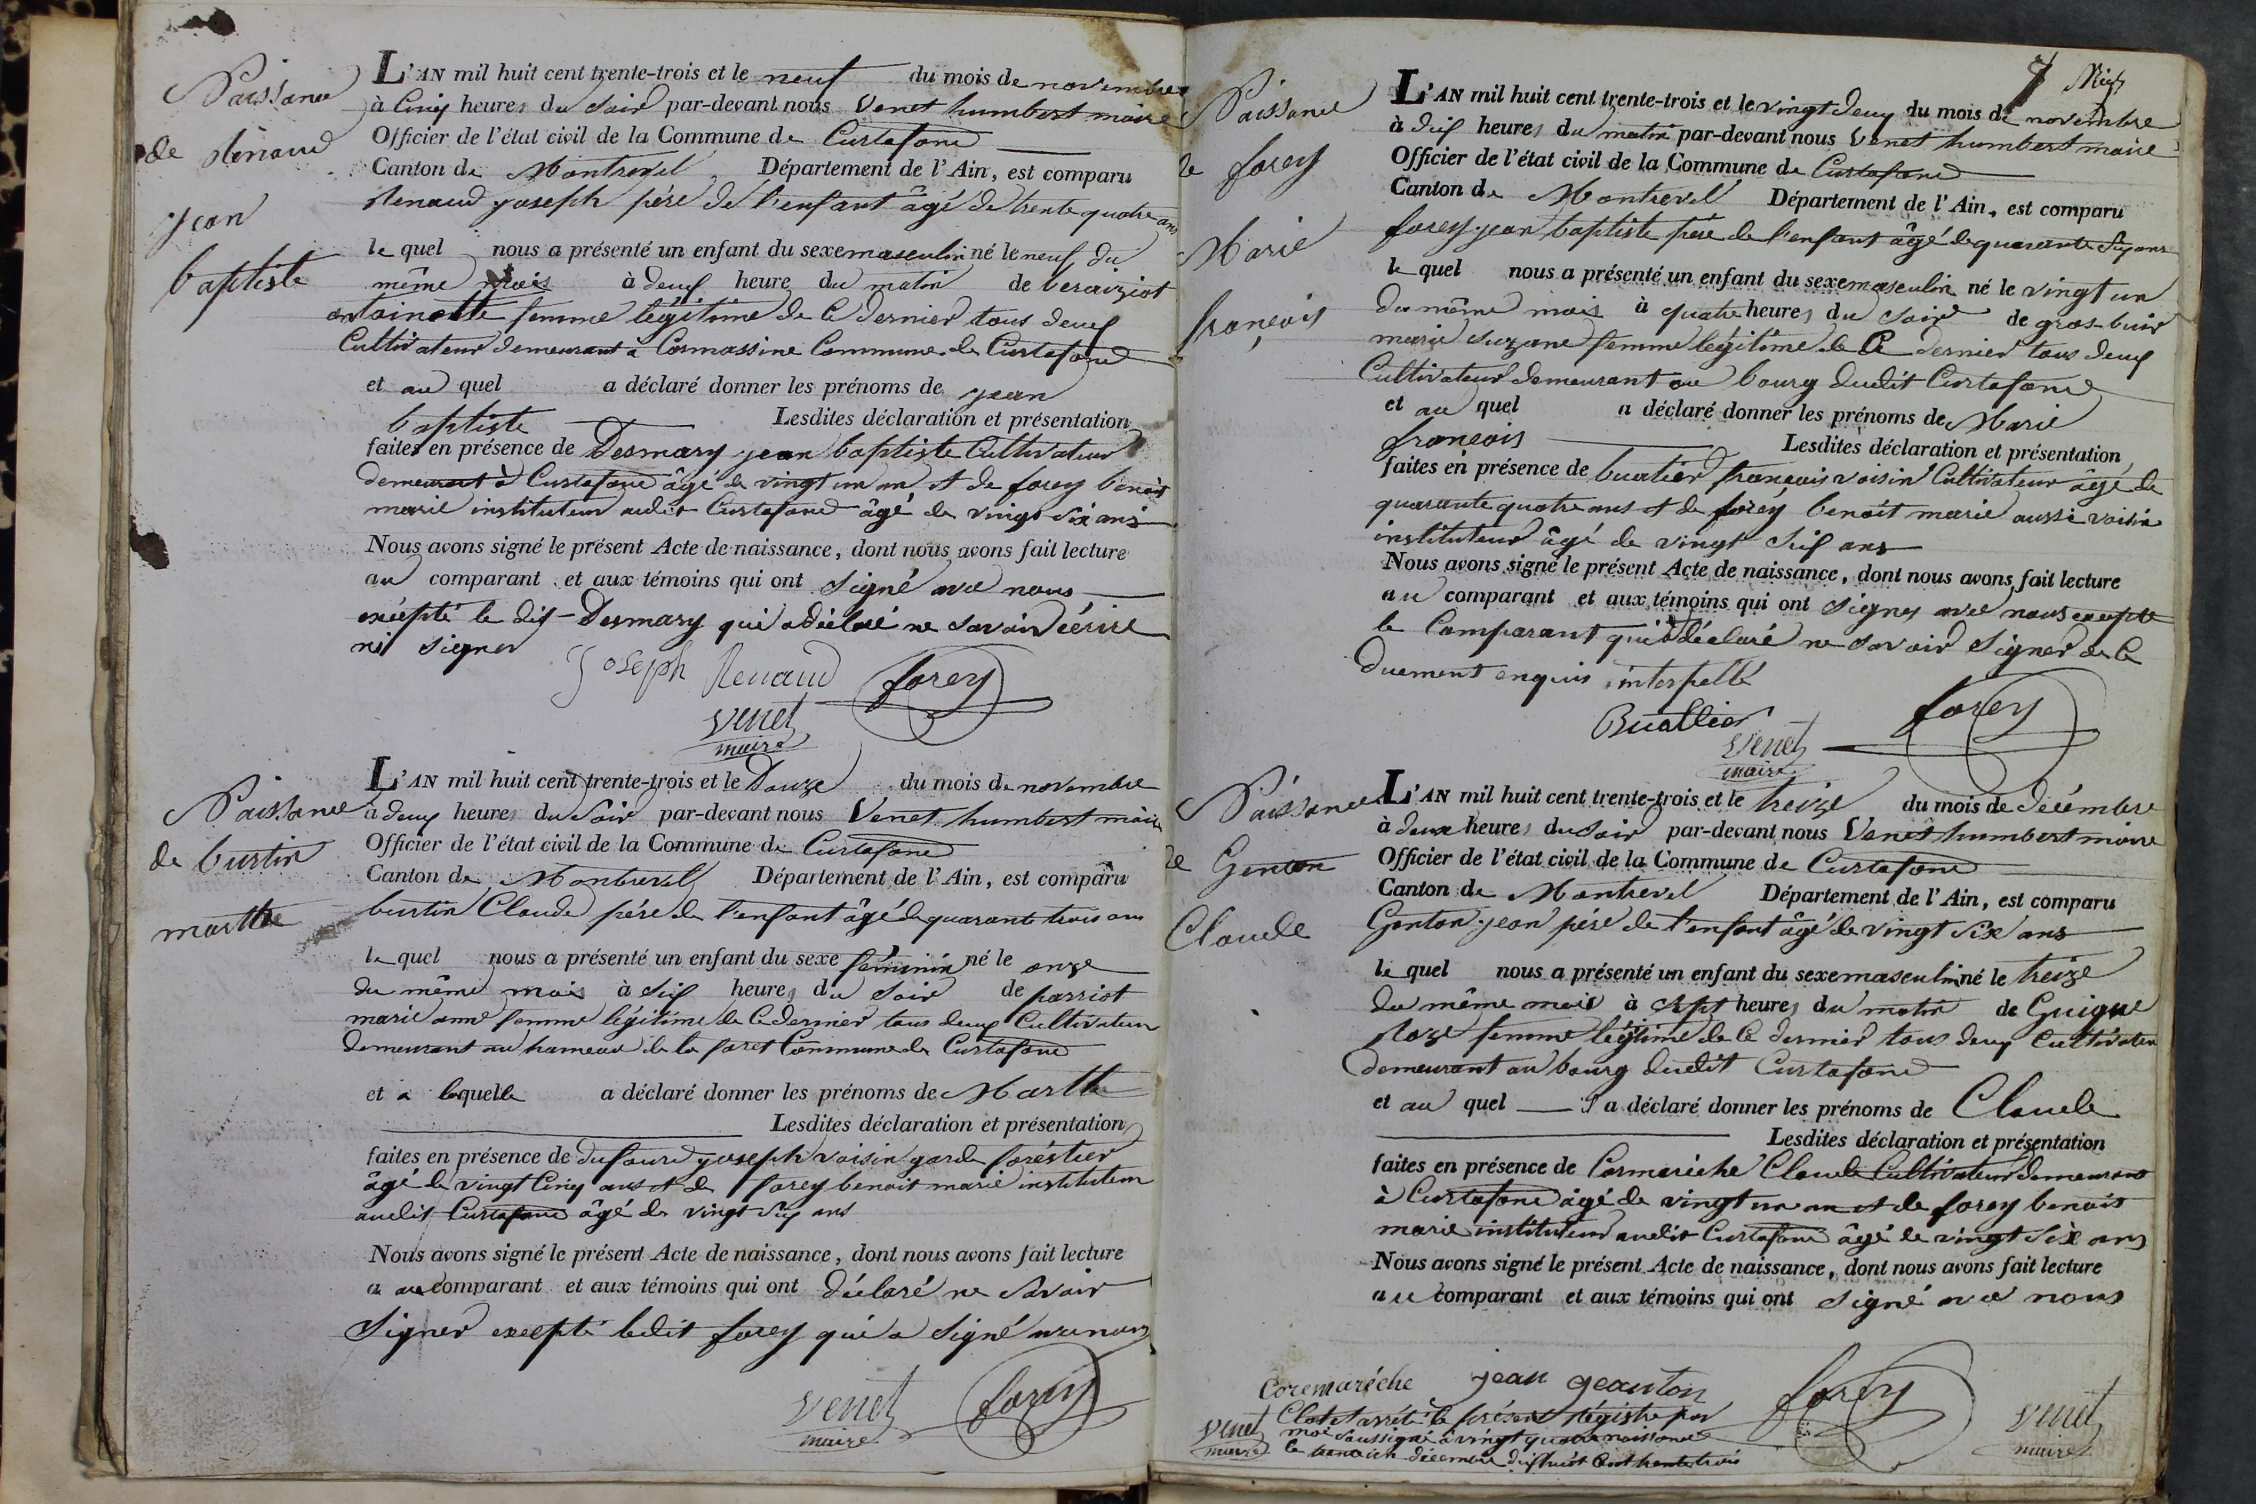 Naissance
de Renaud
Jean
baptiste
L'AN mil huit cent trente-trois et le neuf du mois de novembre
à Cinq heures du Soir par-devant nous Venet humbert maire
Officier de l'état civil de la Commune de Curtafond
Canton de Montrevel Département de l'Ain, est comparu
Renaud joseph pére de l'enfant âgé de trente quatre ans
le quel nous a présenté un enfant du sexe masculin né le neuf du
même mois à deux heure du matin de beraiziat
antoinette femme légitime de Ce dernier tous deux
Cultivateur demeurant à Cormassine Commune de Curtafond
et au quel a déclaré donner les prénoms de jean
baptiste Lesdites déclaration et présentation
faites en présence de Desmary jean baptiste Cultivateur
demeurant à Curtafond âgé de vingt un an et de forey benoit
marie instituteur audit Curtafond âgé de vingt six ans
Nous avons signé le présent Acte de naissance, dont nous avons fait lecture
au comparant et aux témoins qui ont signé avec nous
excepté le dit Desmary qui a déclaré ne savoir écrire
ni signer
Joseph Renaud forey
venet
maire
Naissance
de burtin
marthe
L'AN mil huit cent trente-trois et le Douze du mois de novembre
à deux heures du Soir par-devant nous Venet humbert maire
Officier de l'état civil de la Commune de Curtafond
Canton de Montrevel Département de l'Ain, est comparu
burtin Claude pére de l'enfant âgé de quarante trois ans
le quel nous a présenté un enfant du sexe féminin né le onze
du même mois à six heures du Soir de parriot
marie anne femme légitime de Ce dernier tous deux Cultivateur
demeurant au hameau de la foret Commune de Curtafond
et a laquelle a déclaré donner les prénoms de Marthe
Lesdites déclaration et présentation
faites en présence de dufour joseph voisin garde foréstier
âgé de vingt Cinq ans et de forey benoit marie instituteur
audit Curtafond âgé de vingt six ans
Nous avons signé le présent Acte de naissance, dont nous avons fait lecture
au comparant et aux témoins qui ont déclaré ne savoir
signer excepté ledit forey qui a signé avec nous
venet forey
maire
7 Neuf
Naissance
de forey
Marie
françois
L'AN mil huit cent trente-trois et le vingt deux du mois de novembre
à dix heures du matin par-devant nous Venet humbert maire
Officier de l'état civil de la Commune de Curtafond
Canton de Montrevel Département de l'Ain, est comparu
forey jean baptiste pére de l'enfant âgé de quarante six ans
le quel nous a présenté un enfant du sexe masculin né le vingt un
du même mois à quatre heures du soir de gros-buis
marie suzane femme légitime de Ce dernier tous deux
Cultivateur demeurant au bourg dudit Curtafond
et au quel a déclaré donner les prénoms de Marie
françois Lesdites déclaration et présentation
faites en présence de buatier françois voisin Cultivateur âgé de
quarante quatre ans et de forey benoit marie aussi voisin
instituteur âgé de vingt six ans
Nous avons signé le présent Acte de naissance, dont nous avons fait lecture
au comparant et aux témoins qui ont signés avec nous excepté
le Comparant qui a déclaré ne savoir signer de Ce
duement enquis interpellé
Buattier forey
venet
maire
Naissance
de Genton
Claude
L'AN mil huit cent trente-trois et le treize du mois de décémbre
à deux heures du soir par-devant nous Venet humbert maire
Officier de l'état civil de la Commune de Curtafond
Canton de Montrevel Département de l'Ain, est comparu
Genton jean pére de l'enfant âgé de vingt six ans
le quel nous a présenté un enfant du sexe masculin né le treize
du même mois à sept heures du matin de Guigue
Roze femme légitime de Ce dernier tous deux Cultivateur
demeurant au bourg dudit Curtafond
et au quel a déclaré donner les prénoms de Claude
Lesdites déclaration et présentation
faites en présence de Cormaréche Claude Cultivateur demeurant
à Curtafond âgé de vingt un an et de forey benoit
marie instituteur audit Curtafond âgé de vingt six ans
Nous avons signé le présent Acte de naissance, dont nous avons fait lecture
au comparant et aux témoins qui ont signé avec nous
Coremaréche jean geanton forey venet
maire
Clot et arrété le présent régistre par
moi soussigné à vingt quatre naissance
le décembre dix huit Cent trente trois
venet
maire